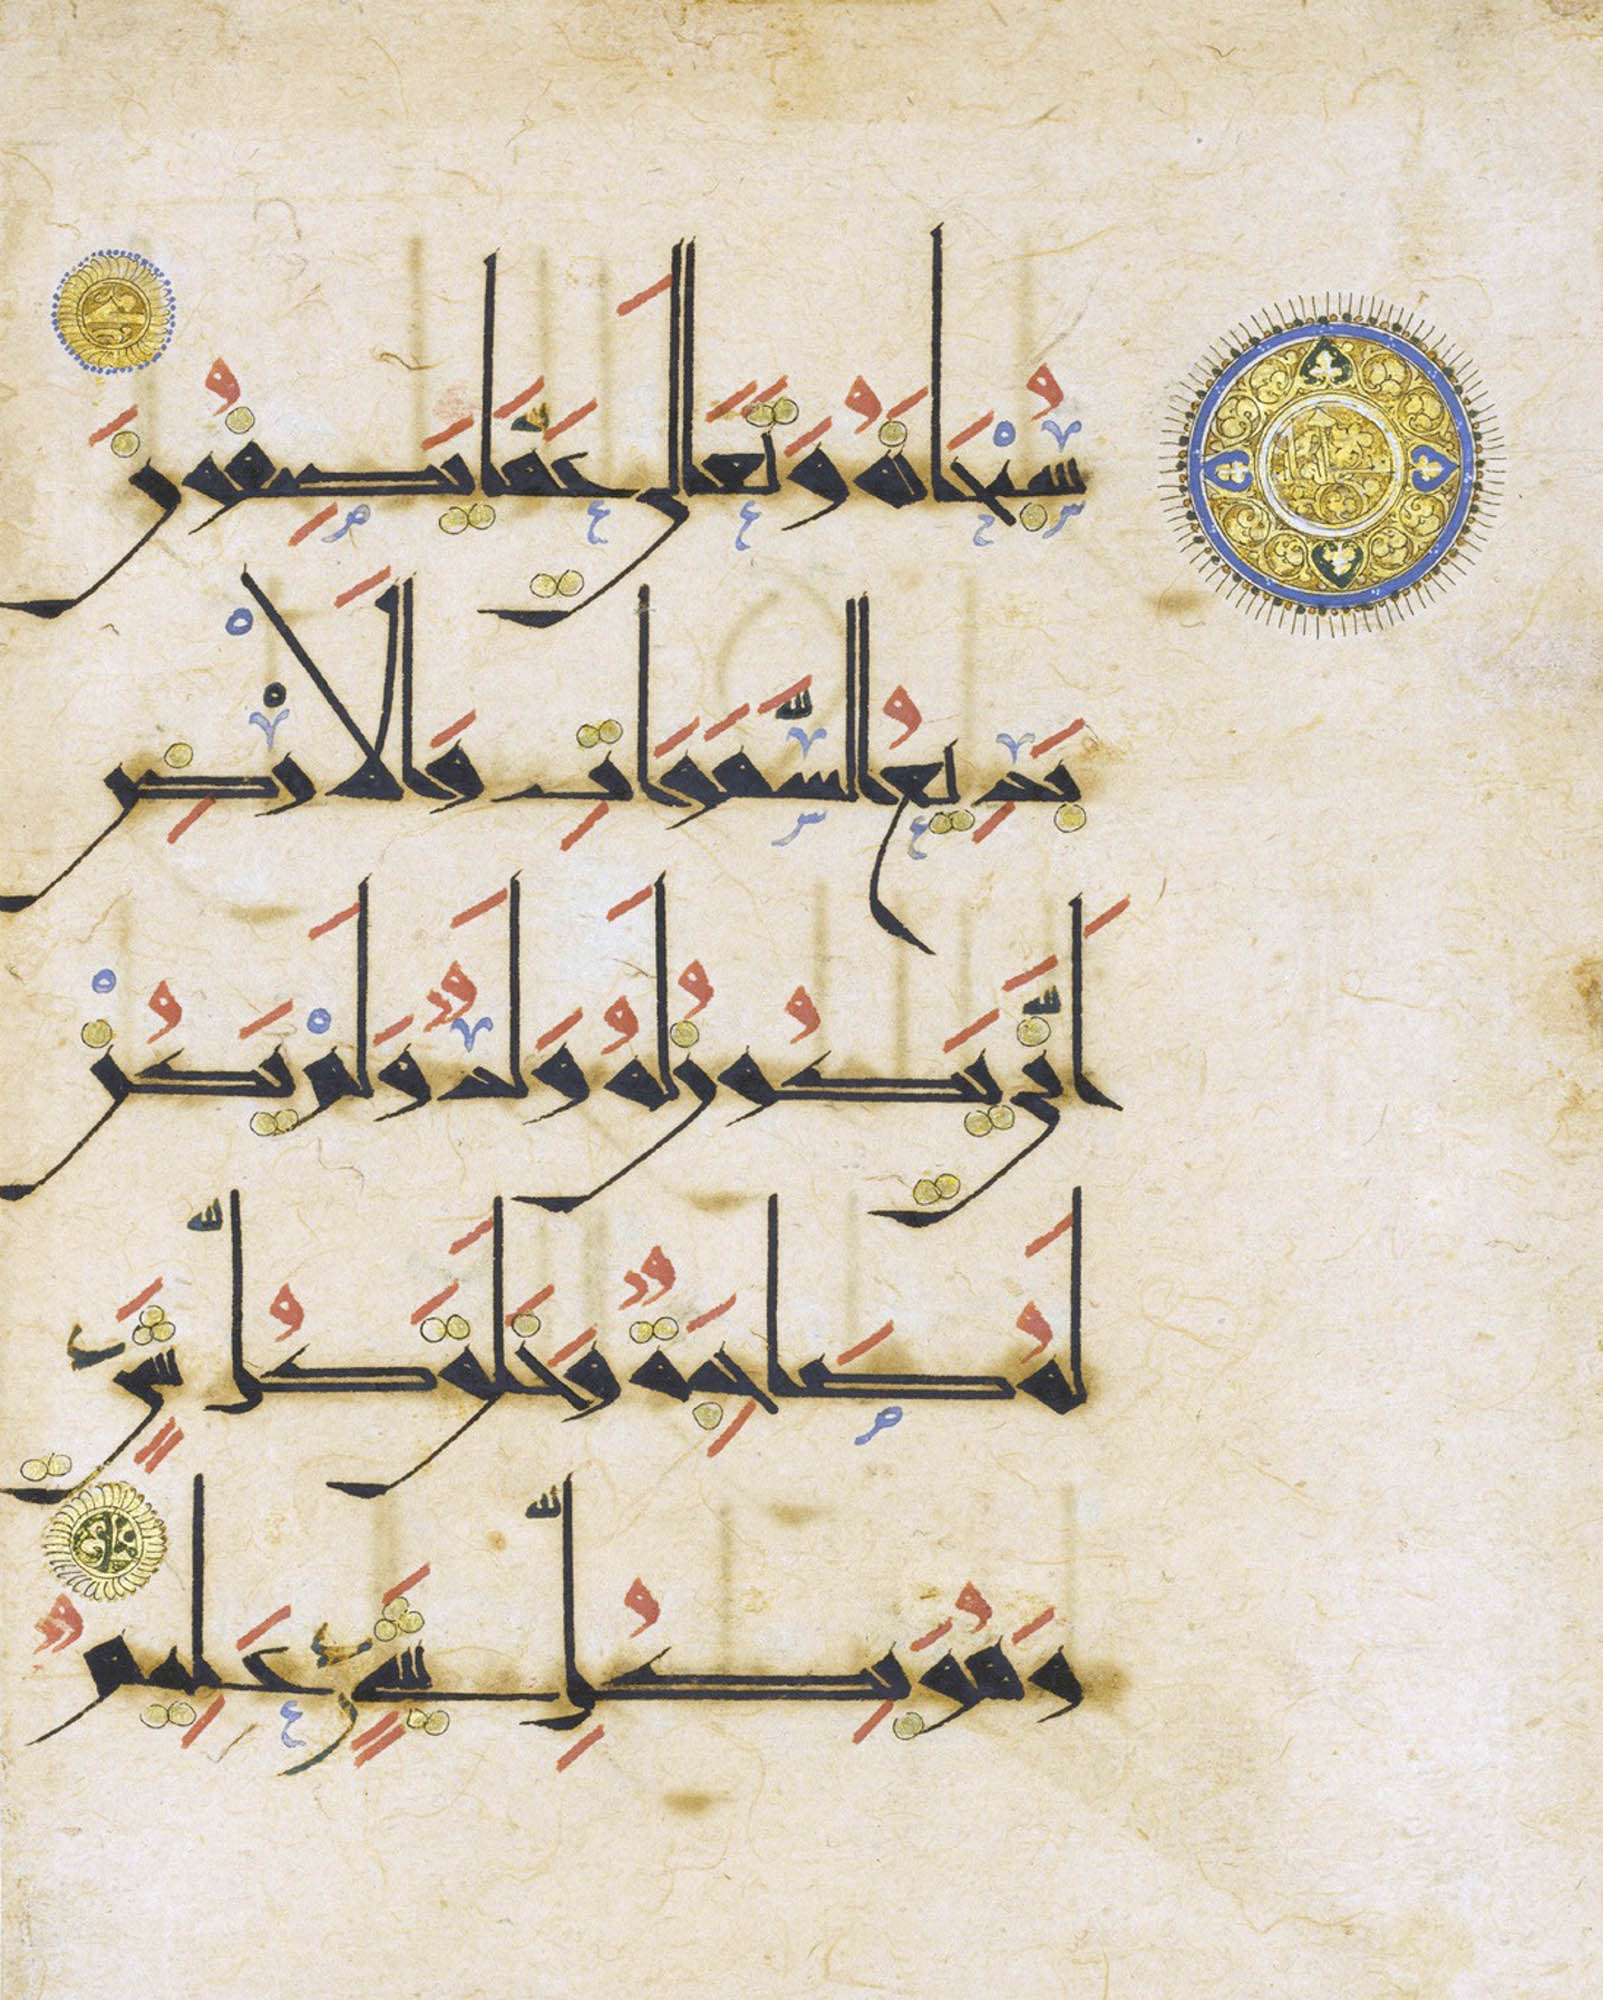 سُبْحَانَهُ وَتَعَالَى عَمَّا يَصِفُونَ
بَدِيعُ السَّمَوَاتِ وَالْأَرْضِ
أَنَّى يَكُونُ لَهُ وَلَدٌ وَلَمْ يَكُنْ
لَهُ صَاحِبَةٌ وَخَلَقَ كُلَّ شَيْءٍ
وَهُوَ بِكُلِّ شَيْءٍ عَلِيمٌ